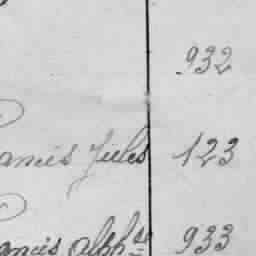 932
ancis Jules 123
ancis alph.se 933